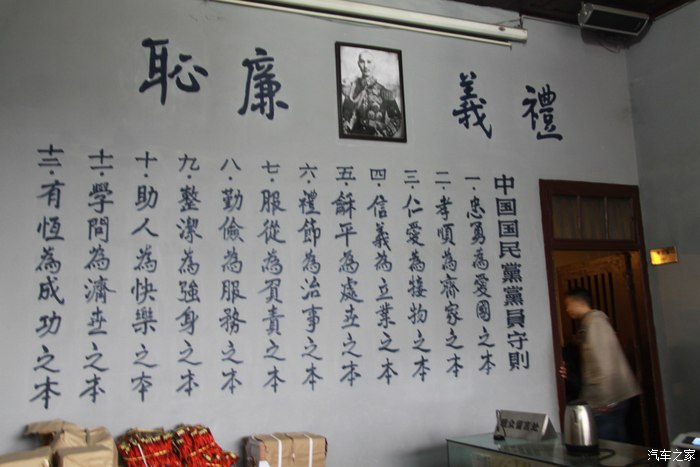 禮
義
廉
恥
中国国民黨黨員守則
一·忠勇為愛國之本
二·孝順為齊家之本
三·仁愛為接物之本
四·信義為立業之本
五·龢平為處世之本
六·禮節為治事之本
七·服從為負責之本
八·勤儉為服務之本
九·整潔為強身之本
十·助人為快樂之本
十一·學問為濟世之本
十二·有恆為成功之本
观众留言处
汽车之家